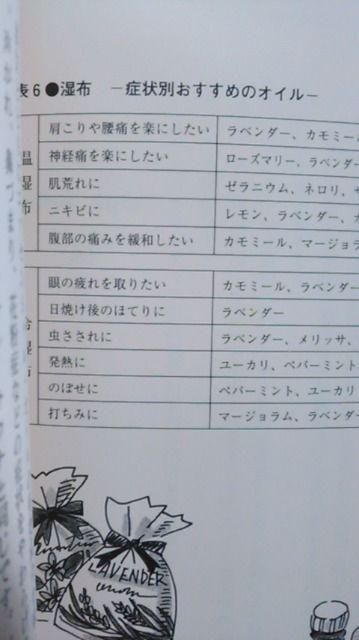 表6●湿布 ―症状別おすすめのオイル―
温湿布
肩こりや腰痛を楽にしたい ラベンダー、カモミー
神経痛を楽にしたい ローズマリー、ラベンダー
肌荒れに ゼラニウム、ネロリ、
ニキビに レモン、ラベンダー、
腹部の痛みを緩和したい カモミール、マージョラ
冷湿布
眼の疲れを取りたい カモミール、ラベンダー
日焼け後のほてりに ラベンダー
虫さされに ラベンダー、メリッサ、
発熱に ユーカリ、ペパーミント
のぼせに ペパーミント、ユーカリ
打ちみに マージョラム、ラベンダー
LAVENDER